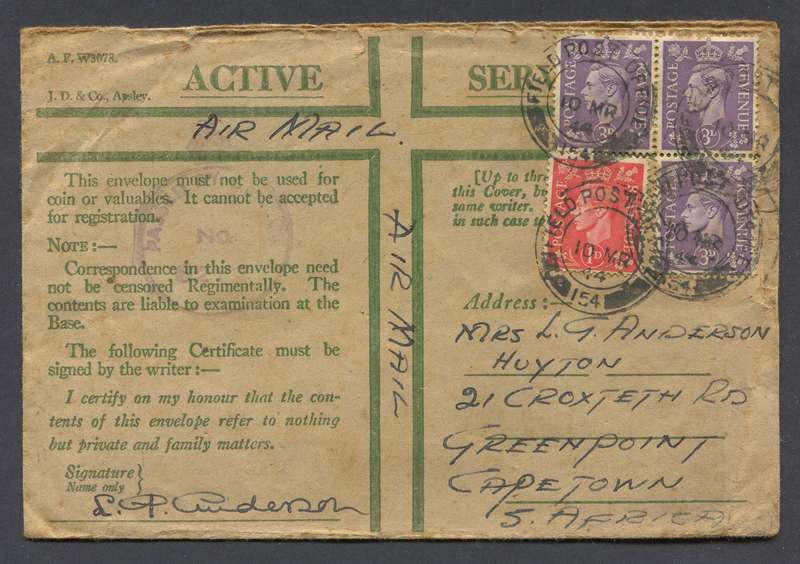 A. F. W3078.
J. D. & Co., Apsley.
ACTIVE
AIR MAIL.
This envelope must not be used for
coin or valuables. It cannot be accepted
for registration.
NOTE:—
Correspondence in this envelope need
not be censored Regimentally. The
contents are liable to examination at the
Base.
The following Certificate must be
signed by the writer:—
I certify on my honour that the con-
tents of this envelope refer to nothing
but private and family matters.
Signature
Name only
Anderson
AIR MAIL
[Up to
this Cover, by
same writer.
in such case
Address:—
MRS L. G. ANDERSON
HUYTON
21 CROXTETH RD
GREENPOINT
CAPETOWN
S. AFRICA
POSTAGE REVENUE
3D
FIELD POST
10 MR
44
154
POSTAGE REVENUE
3D
POSTAGE
1D
FIELD POST
10 MR
44
154
3D
10 MR
44
154